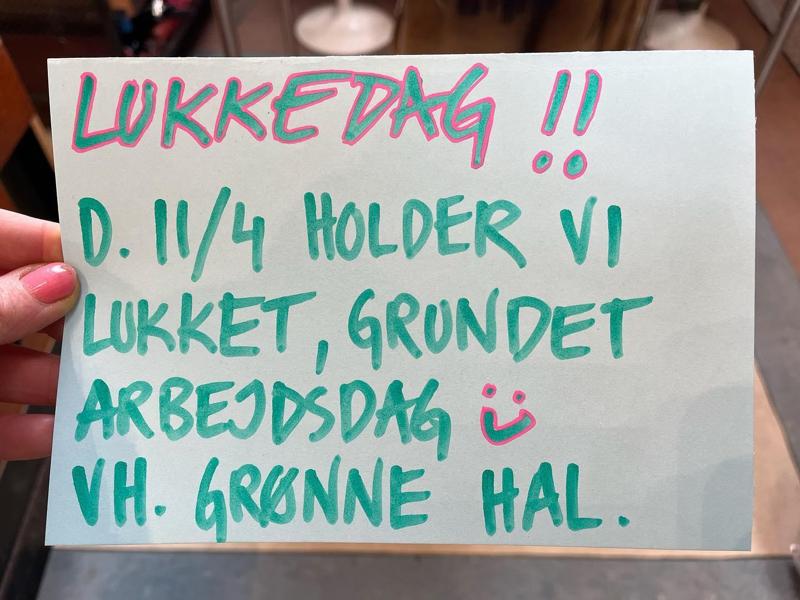 LUKKEDAG !!
D. 11/4 HOLDER VI
LUKKET, GRUNDET
ARBEJDSDAG
VH. GRØNNE HAL.